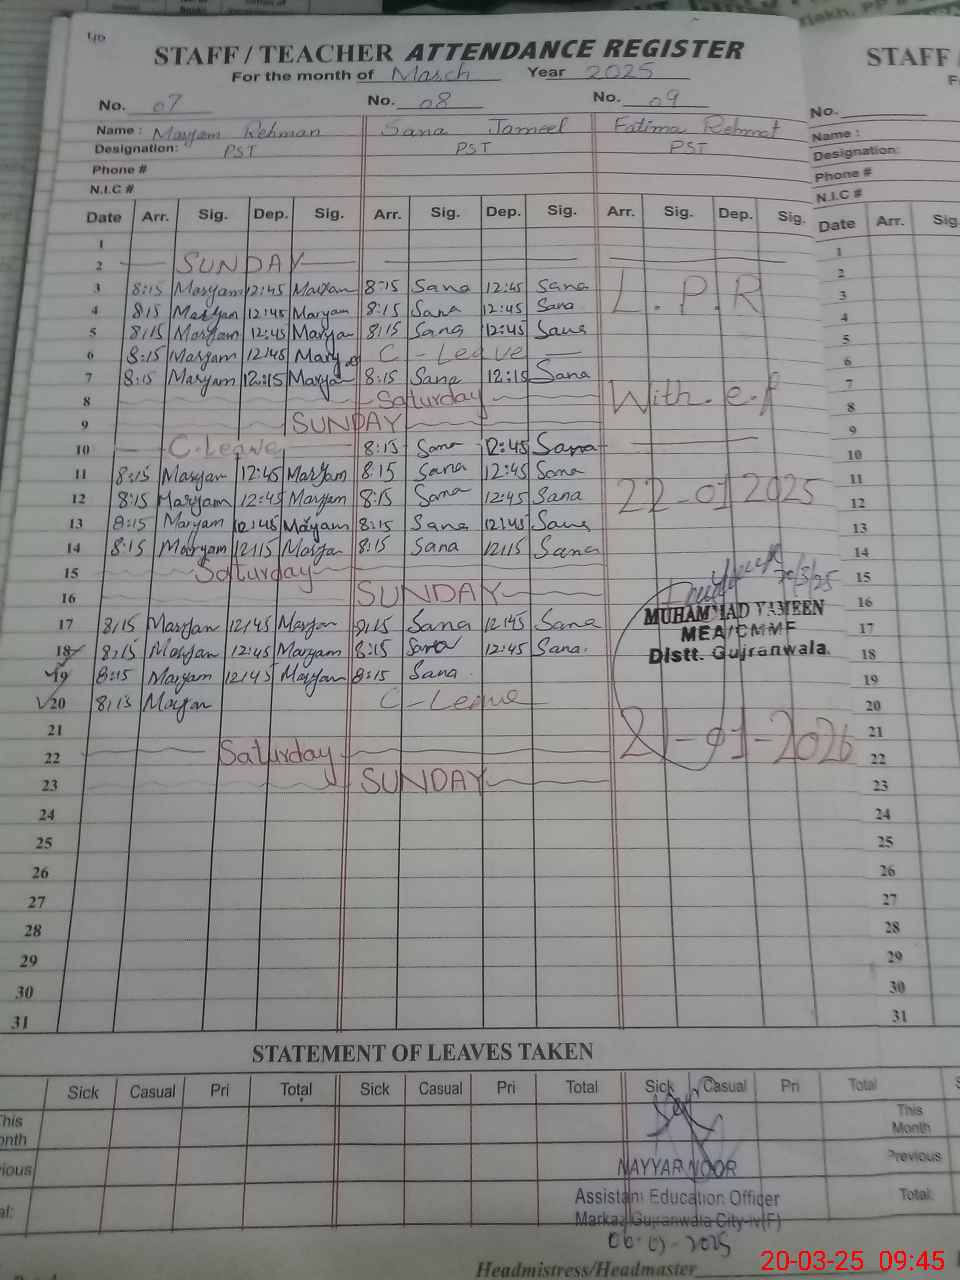 STAFF / TEACHER ATTENDANCE REGISTER
For the month of March Year 2025
No. 07 No. 08 No. 09
Name : Maryam Rehman Sana Jameel Fatima Rehmat
Designation: PST PST PST
Phone #
N.I.C #
Date Arr. Sig. Dep. Sig. Arr. Sig. Dep. Sig. Arr. Sig. Dep. Sig.
1
2 SUNDAY
3 8:15 Maryam 12:45 Maryam 8:15 Sana 12:45 Sana L.P.R
4 8:15 Maryam 12:45 Maryam 8:15 Sana 12:45 Sana
5 8:15 Maryam 12:45 Marya 8:15 Sana 12:45 Sana
6 8:15 Maryam 12:45 Mary C-Leave
7 8:15 Maryam 12:15 Marya 8:15 Sana 12:15 Sana
8 Saturday With.e.f
9 SUNDAY
10 C.Leave 8:15 Sana 12:45 Sana
11 8:15 Maryam 12:45 Maryam 8:15 Sana 12:45 Sana
12 8:15 Maryam 12:45 Maryam 8:15 Sana 12:45 Sana 22-01 2025
13 8:15 Maryam 12:45 Maryam 8:15 Sana 12:45 Sana
14 8:15 Maryam 12:15 Maryam 8:15 Sana 12:15 Sana
15 Saturday
16 SUNDAY
17 8:15 Maryam 12:45 Maryam 8:15 Sana 12:45 Sana
18 8:15 Maryam 12:45 Maryam 8:15 Sana 12:45 Sana.
19 8:15 Maryam 12:45 Maryam 8:15 Sana.
20 8:15 Maryam C-Leave
21
22 Saturday 21-01-2026
23 SUNDAY
24
25
26
27
28
29
30
31
20/3/25
MUHAMMAD YAMEEN
MEA/CMMF
Distt. Gujranwala.
STATEMENT OF LEAVES TAKEN
Sick Casual Pri Total Sick Casual Pri Total Sick Casual Pri Total
This Month
Previous
Total:
NAYYAR NOOR
Assistant Education Officer
Markaz Gujranwala City-iv(F)
Headmistress/Headmaster
STAFF /
No.
Name :
Designation:
Phone #
N.I.C #
Date Arr. Sig.
1
2
3
4
5
6
7
8
9
10
11
12
13
14
15
16
17
18
19
20
21
22
23
24
25
26
27
28
29
30
31
This Month
Previous
Total:
20-03-25 09:45